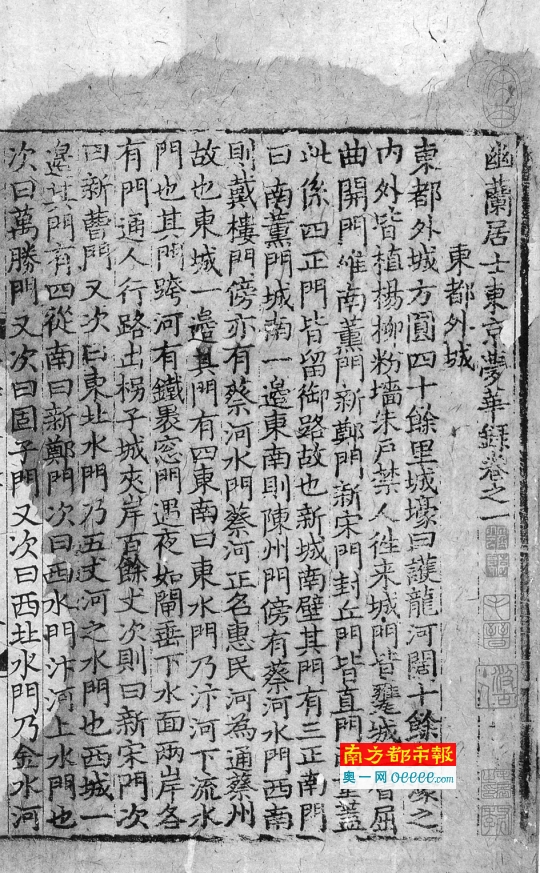 幽蘭居士東京夢華錄卷之一
東都外城
東都外城方圓四十餘里城壕曰護龍河闊十餘壕之
內外皆植楊柳粉墻朱戶禁人徃来城門皆甕城屈
曲開門唯南薰門新鄭門新宋門封丘門皆直門蓋
此係四正門皆留御路故也新城南壁其門有三正南門
曰南薰門城南一邊東南則陳州門傍有蔡河水門西南
則戴樓門傍亦有蔡河水門蔡河正名惠民河為通蔡州
故也東城一邊其門有四東南曰東水門乃汴河下流水
門也其門跨河有鐵裹窓門遇夜如閘垂下水面兩岸各
有門通人行路出拐子城夾岸百餘丈次則曰新宋門次
曰新曹門又次曰東北水門乃五丈河之水門也西城一
邊其門有四從南曰新鄭門次曰西水門汴河上水門也
次曰萬勝門又次曰固子門又次曰西北水門乃金水河
南方都市報
奥一网 oeeee.com